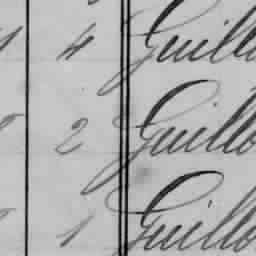 4 Guillo
2 Guillo
1 Guillo